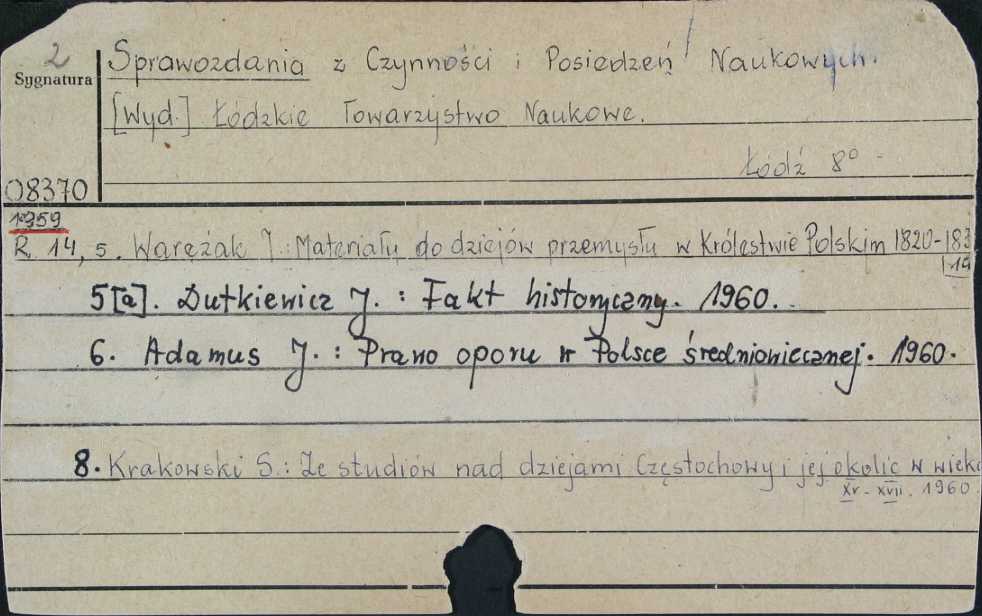 2
Sygnatura
Sprawozdania z Czynności i Posiedzeń Naukowych.
[Wyd.] Łódzkie Towarzystwo Naukowe.
Łódź 8°
08370
1959
R. 14, 5. Warężak J.: Materiały do dziejów przemysłu w Królestwie Polskim 1820-183
5[a]. Dutkiewicz J. : Fakt historyczny. 1960.
6. Adamus J. : Prawo oporu w Polsce średniowiecznej. 1960.
8. Krakowski S.: Ze studiów nad dziejami Częstochowy i jej okolic w wieku
XV - XVII. 1960.